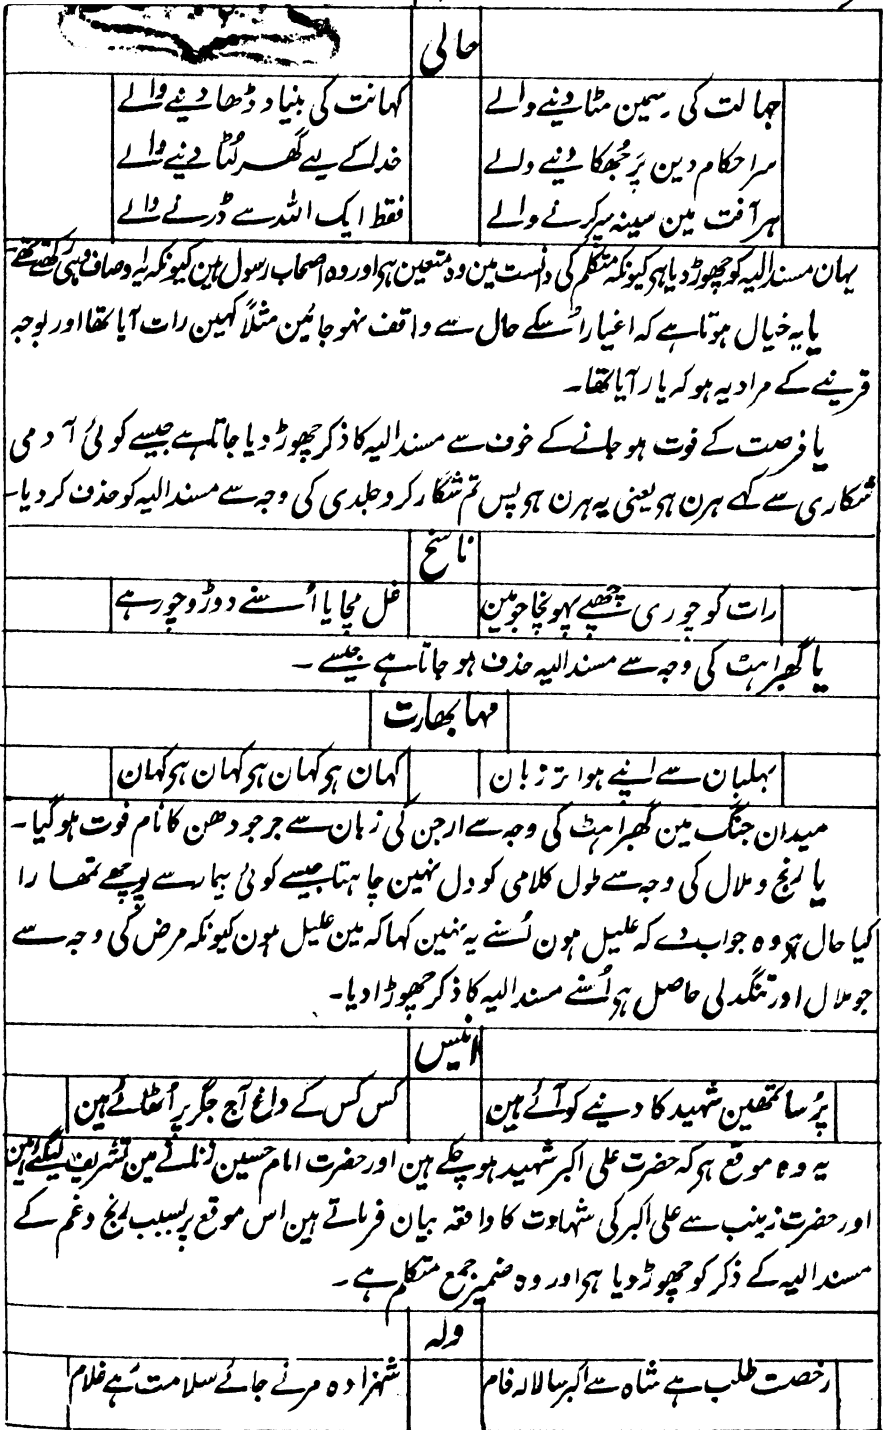 حالی
جہالت کی رسمین مٹا دینے والے کہانت کی بنیاد ڈھا دینے والے
سر احکام دین پر جُھکا دینے والے خدا کے لیے گھر لُٹا دینے والے
ہر آفت مین سینہ سپر کرنے والے فقط ایک اللہ سے ڈرنے والے
یہان مسند الیہ کو چھوڑ دیا ہی کیونکہ متکلم کی دانست مین وہ متعین ہی اور وہ اصحاب رسول ہین کیونکہ یہ اوصاف وہی رکھتے تھے۔
یا یہ خیال ہوتا ہے کہ اغیار اُسکے حال سے واقف نہو جائین مثلاً کہین رات آیا تھا اور بوجہ
قرینے کے مراد یہ ہو کہ یار آیا تھا۔
یا فرصت کے فوت ہو جانے کے خوف سے مسند الیہ کا ذکر چھوڑ دیا جاتا ہے جیسے کوئی آدمی
شکاری سے کہے ہرن ہی یعنی یہ ہرن ہی پس تم شکار کرو جلدی کی وجہ سے مسند الیہ کو حذف کر دیا۔
ناسخ
رات کو چوری چھپے پہونچا جو مین غل مچایا اُسنے دوڑو چور ہے
یا گھبراہٹ کی وجہ سے مسند الیہ حذف ہو جاتا ہے جیسے ۔
مہا بھارت
بہلبان سے اپنے ہوا تر زبان کہان ہی کہان ہی کہان ہی کہان
میدان جنگ مین گھبراہٹ کی وجہ سے ارجن کی زبان سے جرجودھن کا نام فوت ہو گیا۔
یا رنج و ملال کی وجہ سے طول کلامی کو دل نہین چاہتا جیسے کوئی بیمار سے پوچھے تمھارا
کیا حال ہی وہ جواب دے کہ علیل ہون اُسنے یہ نہین کہا کہ مین علیل ہون کیونکہ مرض کی وجہ سے
جو ملال اور تنگدلی حاصل ہی اُسنے مسند الیہ کا ذکر چھوڑا دیا۔
انیس
پُرسا تمھین شہید کا دینے کو آئے ہین کس کس کے داغ آج جگر پر اُٹھائے ہین
یہ وہ موقع ہی کہ حضرت علی اکبر شہید ہو چکے ہین اور حضرت امام حسین زنانے مین تشریف لیگئے ہین
اور حضرت زینب سے علی اکبر کی شہادت کا واقعہ بیان فرماتے ہین اس موقع پر بسبب رنج و غم کے
مسند الیہ کے ذکر کو چھوڑ دیا ہی اور وہ ضمیر جمع متکلم ہے ۔
ولہ
رخصت طلب ہے شاہ سے اکبر سا لالہ فام شہزادہ مرنے جائے سلامت رہے غلام